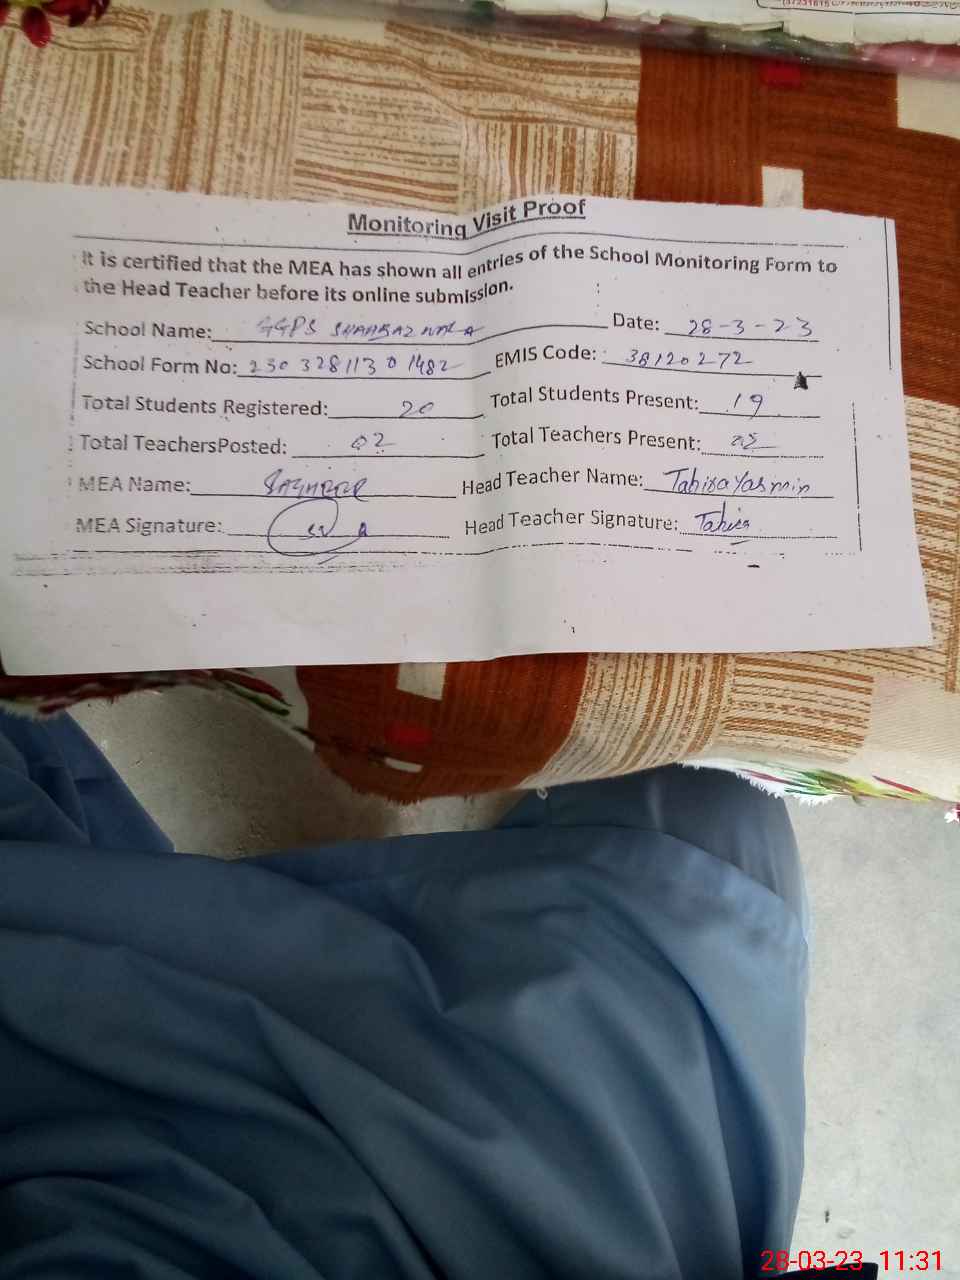 Monitoring Visit Proof
It is certified that the MEA has shown all entries of the School Monitoring Form to
the Head Teacher before its online submission.
School Name: GGPS SHAHBAZ WALA Date: 28-3-23
School Form No: 23032811301482 EMIS Code: 38120272
Total Students Registered: 20 Total Students Present: 19
Total TeachersPosted: 02 Total Teachers Present:
MEA Name: Head Teacher Name: Tahira Yasmin
MEA Signature: Head Teacher Signature: Tahira
28-03-23 11:31